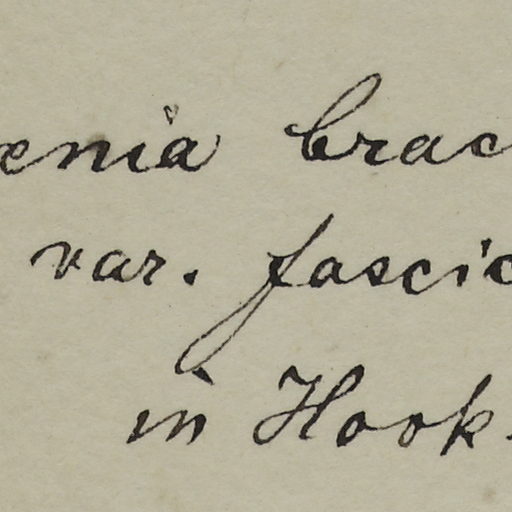 enia brac
var. fascic
in Hook.